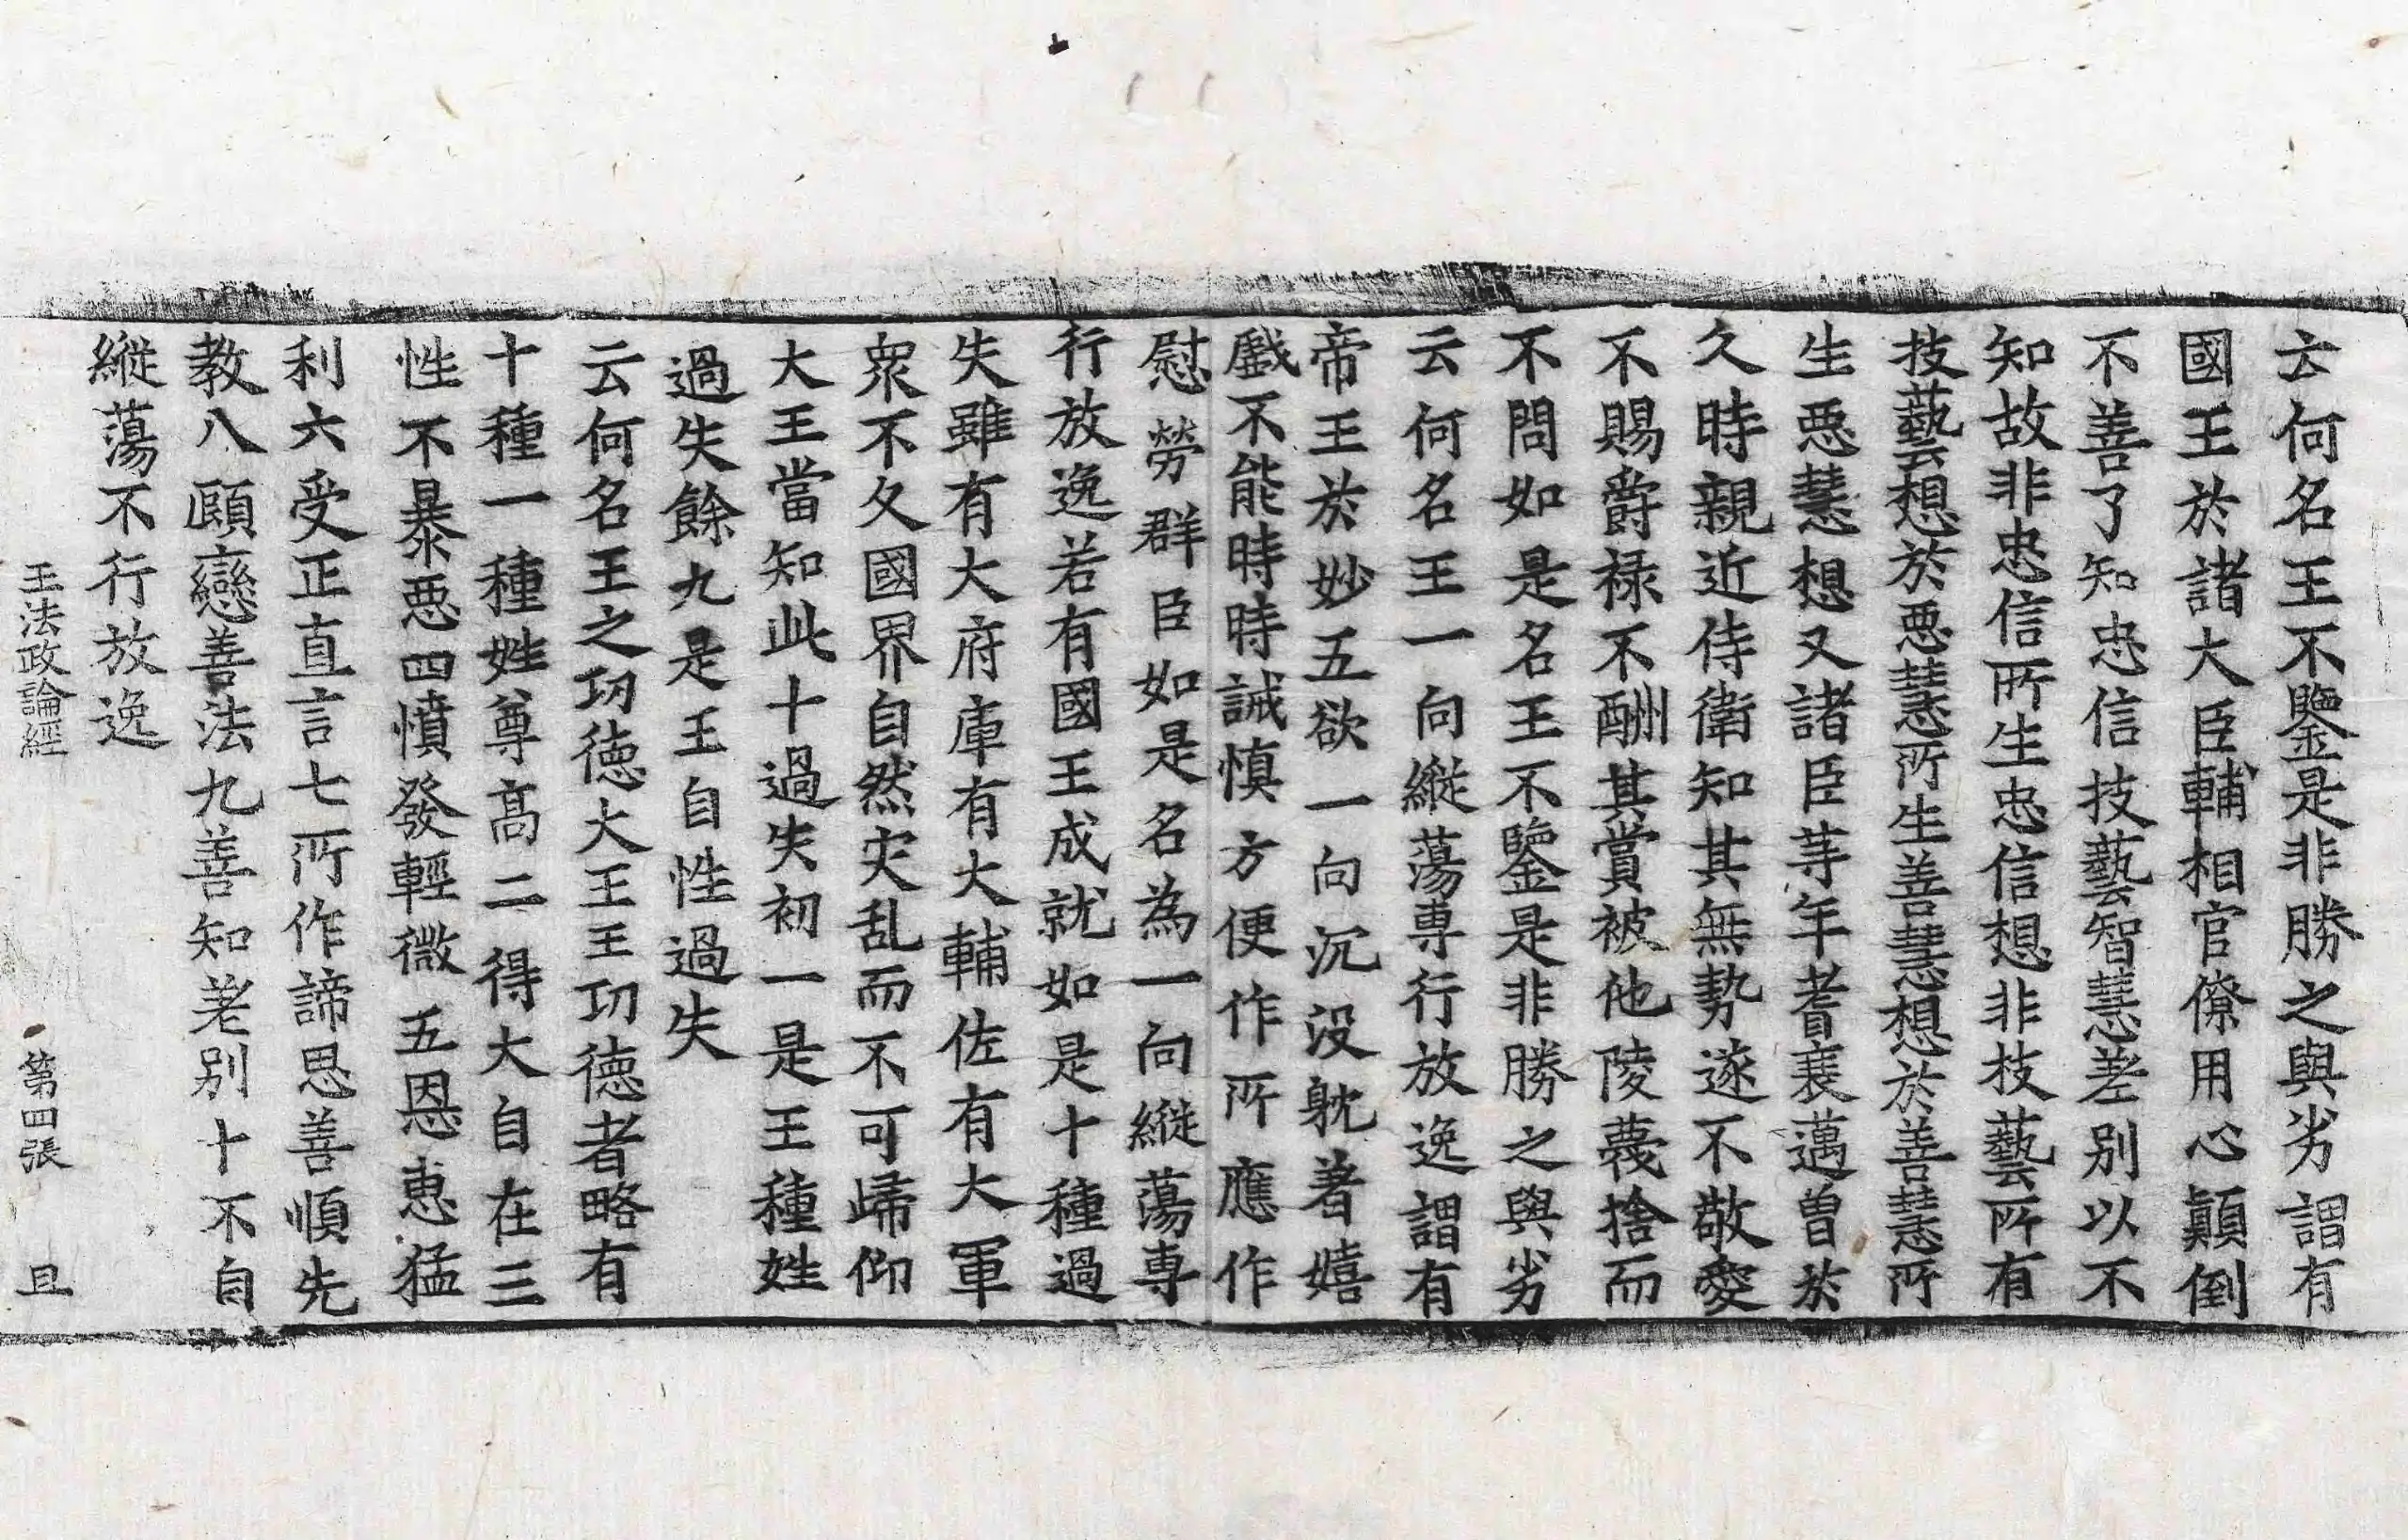 云何名王不鑒是非勝之與劣謂有
國王於諸大臣輔相官僚用心顛倒
不善了知忠信技藝智慧差别以不
知故非忠信所生忠信想非技藝所有
技藝想於惡慧所生善慧想於善慧所
生惡慧想又諸臣等年耆衰邁曽於
久時親近侍衛知其無勢遂不敬愛
不賜爵禄不酬其賞被他陵蔑捨而
不問如是名王不鑒是非勝之與劣
云何名王一向縱蕩專行放逸謂有
帝王於妙五欲一向沉没躭著嬉
戲不能時時誡慎方便作所應作
慰勞群臣如是名為一向縱蕩專
行放逸若有國王成就如是十種過
失雖有大府庫有大輔佐有大軍
衆不久國界自然灾乱而不可歸仰
大王當知此十過失初一是王種姓
過失餘九是王自性過失
云何名王之功德大王王功德者略有
十種一種姓尊高二得大自在三
性不暴惡四憤發輕微五恩惠猛
利六受正直言七所作諦思善順先
教八顧戀善法九善知差别十不自
縱蕩不行放逸
王法政論經 第四張 且